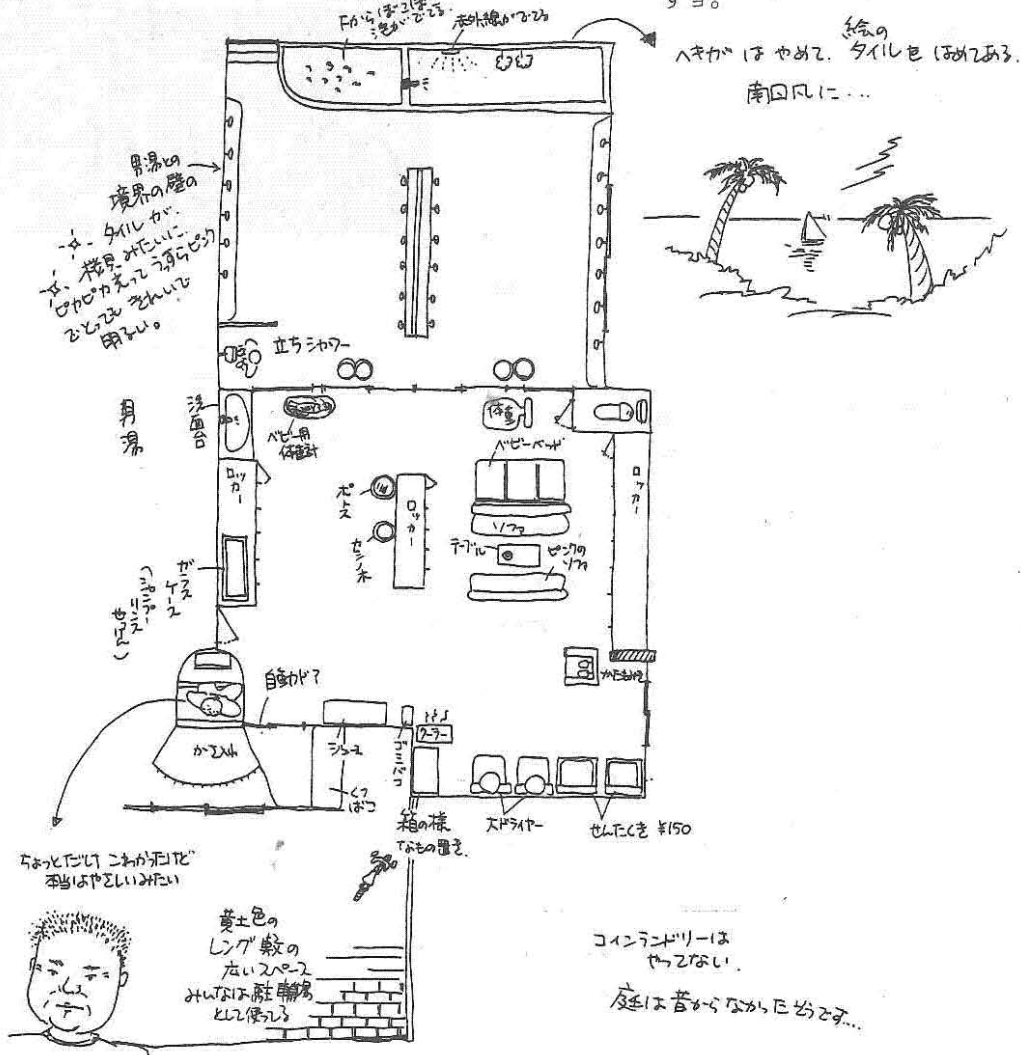 すョ。
下からぼこぼこ
泡がでてる
赤外線がでてる
ヘキガは やめて、
絵の
タイルを はめてある。
南国風に…
男湯との
境界の壁の
タイルが、
様見みたいに
ピカピカ光って うっすらピンク
でとっても きれいで
明るい。
立ちシャワー
男湯
洗面台
ベビー用
体重計
体重
ベビーベッド
ロッカー
ポトス
ロッカー
ソファ
テーブル
ピンクの
ソファ
ロッカー
ガラス
ケース
(シャンプー
リンス
せっけん)
自動ドア
ジュース
ゴミバコ
クーラー
くつ
ばこ
箱の様
なもの置き。
大ドライヤー
せんたくき ¥150
ちょっとだけ こわかったけど
本当はやさしいみたい
黄土色の
レンガ敷の
広いスペース
みんなは駐輪場
として使ってる
コインランドリーは
やってない。
庭は昔から なかったそうです…